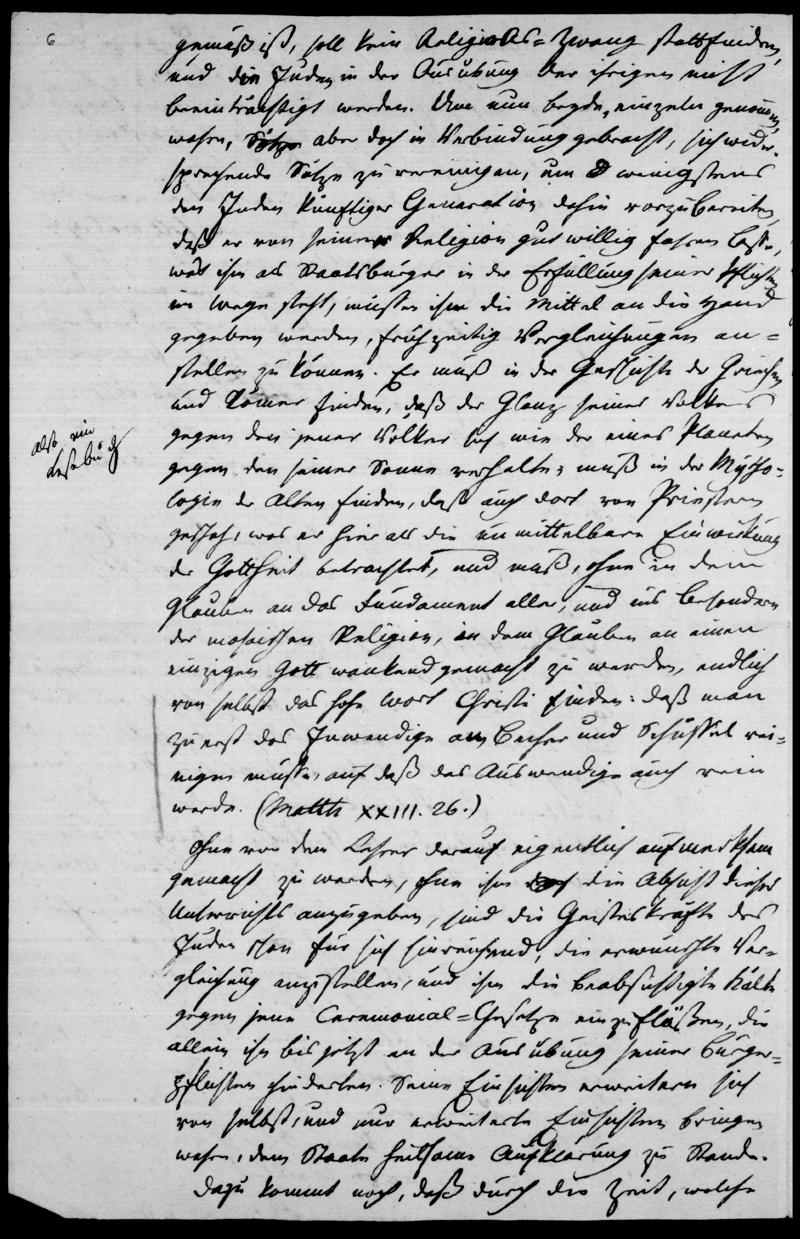 6
gemäß ist, soll kein Religions=Zwang stattfinden,
und die Juden in der Ausübung der ihrigen nicht
beeinträchtigt werden. Um nun beyde, einzeln genommen,
wahre, aber doch in Verbindung gebracht, sich wider-
sprechende Sätze zu vereinigen, um wenigstens
den Juden künftiger Generation dahin vorzubereiten,
daß er von seiner Religion gutwillig fahren lasse,
was ihm als Staatsbürger in der Erfüllung seiner Pflichten
im Wege steht, müssen ihm die Mittel an die Hand
gegeben werden, frühzeitig Vergleichungen an=
stellen zu können. Er muß in der Geschichte der Griechen
und Römer finden, daß der Glanz seines Volkes
gegen den jener Völker sich wie der eines Planeten
also ein
Lesebuch
gegen den seiner Sonne verhalte; muß in der Mytho=
logie der Alten finden, daß auch dort von Priestern
geschah, was er hier als die unmittelbare Einwirkung
der Gottheit betrachtet, und muß, ohne in dem
Glauben an das Fundament aller, und ins besondere
der mosaischen Religion, in dem Glauben an einen
einzigen Gott wankend gemacht zu werden, endlich
von selbst das hohe Wort Christi finden: daß man
zuerst das Inwendige am Becher und Schüssel rei=
nigen müsse, auf daß das Auswendige auch rein
werde. (Matth XXIII. 26.)
Ohne von dem Lehrer darauf eigentlich aufmerksam
gemacht zu werden, ohne ihm die Absicht dieses
Unterrichts anzugeben, sind die Geisteskräfte des
Juden schon für sich hinreichend, die erwünschte Ver-
gleichung anzustellen, und ihm die beabsichtigte Kälte
gegen jene Ceremonial=Gesetze einzuflößen, die
allein ihn bis jetzt an der Ausübung seiner Bürger=
pflichten hinderten. Seine Einsichten erweitern sich
von selbst, und nur erweiterte Einsichten bringen
wahre, dem Staate heilsame Aufklärung zu Stande.
Dazu kommt noch, daß durch die Zeit, welche